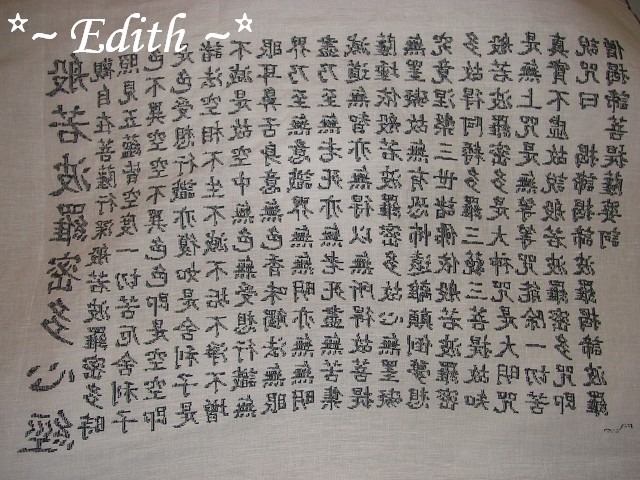 ☆~ Edith ~☆
般若波羅密多心經
觀自在菩薩行深般若波羅密多時
照見五蘊皆空度一切苦厄舍利子
色不異空空不異色色即是空空即
是色受想行識亦復如是舍利子是
諸法空相不生不滅不垢不淨不增
不減是故空中無色無受想行識無
眼耳鼻舌身意無色香味觸法無眼
界乃至無意識界無無明亦無無明
盡乃至無老死亦無老死盡無苦集
滅道無智亦無得以無所得故菩提
薩埵依般若波羅密多故心無罣礙
無罣礙故無有恐怖遠離顛倒夢想
究竟涅槃三世諸佛依般若波羅密
多故得阿耨多羅三藐三菩提故知
般若波羅密多是大神咒是大明咒
是無上咒是無等等咒能除一切苦
真實不虛故說般若波羅密多咒即
說咒曰 揭諦揭諦 波羅揭諦 波羅
僧揭諦菩提薩婆訶